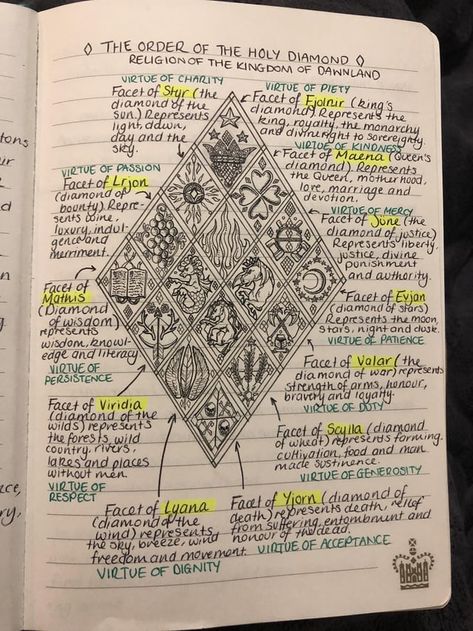 ◊ THE ORDER OF THE HOLY DIAMOND ◊
RELIGION OF THE KINGDOM OF DANNLAND
VIRTUE OF CHARITY
Facet of Styr (the
diamond of the
sun.) Represents
light, dawn,
day and the
sky.
VIRTUE OF PIETY
Facet of Fjolnir (king's
diamond) Represents the
king, royalty, the monarchy
and divine right to sovereignty.
VIRTUE OF KINDNESS
Facet of Maena (Queen's
diamond) Represents
the Queen, motherhood,
love, marriage and
devotion.
VIRTUE OF PASSION
Facet of Lrjon
(diamond of
bounty) Repre-
sents wine,
luxury, indul
gence and
merriment.
VIRTUE OF MERCY
Facet of June (the
diamond of justice)
Represents liberty,
justice, divine
punishment
and authority.
Facet of
Mathis
(Diamond
of wisdom)
represents
wisdom, knowl-
edge and literacy
VIRTUE OF
PERSISTENCE
Facet of Evjan
(diamond of stars)
Represents the moon,
stars, night and dusk.
VIRTUE OF PATIENCE
Facet of Valar (the
diamond of war) represents
strength of arms, honour,
bravery and loyalty.
VIRTUE OF DUTY
Facet of Viridia
(diamond of the
wilds) represents
the forests, wild
country, rivers,
lakes and places
without men.
VIRTUE OF
RESPECT
Facet of Scylla (diamond
of wheat) represents farming,
cultivation, food and man
made sustinence.
VIRTUE OF GENEROSITY
Facet of Lyana
(diamond of the
wind) represents
the sky, breeze, wind
freedom and movement.
VIRTUE OF DIGNITY
Facet of Yjorn (diamond of
death) represents death, relief
from suffering, entombment and
honour of the dead.
VIRTUE OF ACCEPTANCE